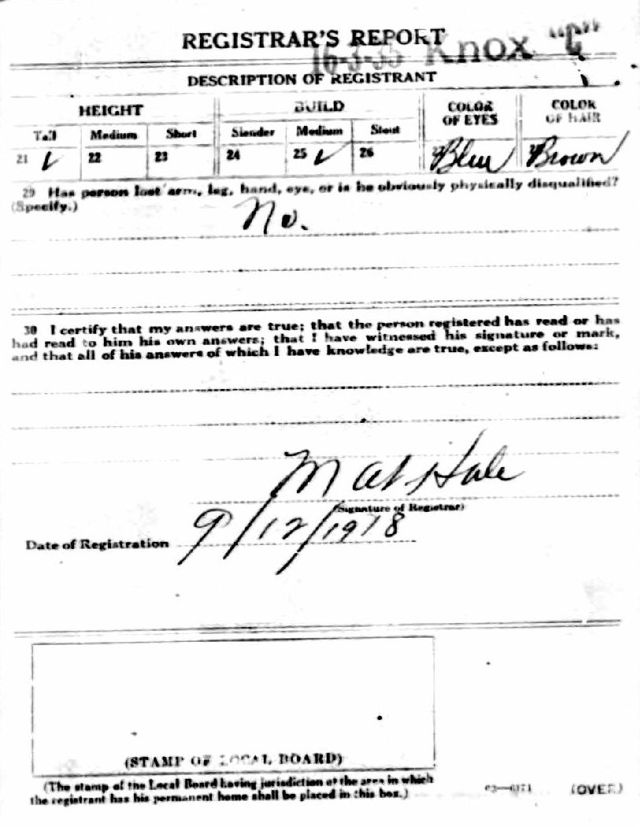 REGISTRAR'S REPORT
16-3-35 Knox "C"
DESCRIPTION OF REGISTRANT
HEIGHT BUILD COLOR OF EYES COLOR OF HAIR
Tall Medium Short Slender Medium Stout
21 ✓ 22 23 24 25 ✓ 26 27 Blue Brown
29 Has person lost arm, leg, hand, eye, or is he obviously physically disqualified?
(Specify.)
No.
30 I certify that my answers are true; that the person registered has read or has
had read to him his own answers; that I have witnessed his signature or mark,
and that all of his answers of which I have knowledge are true, except as follows:
Mat Hale
(Signature of Registrar)
Date of Registration 9/12/1918
(STAMP OF LOCAL BOARD)
(The stamp of the Local Board having jurisdiction of the area in which
the registrant has his permanent home shall be placed in this box.)
03—6171 (OVER)